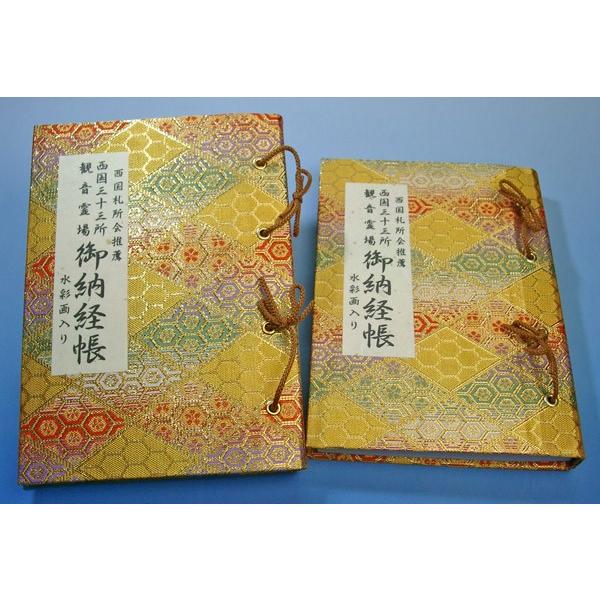 西国札所会推薦
西国三十三所
観音霊場
御納経帳
水彩画入り
西国札所会推薦
西国三十三所
観音霊場
御納経帳
水彩画入り